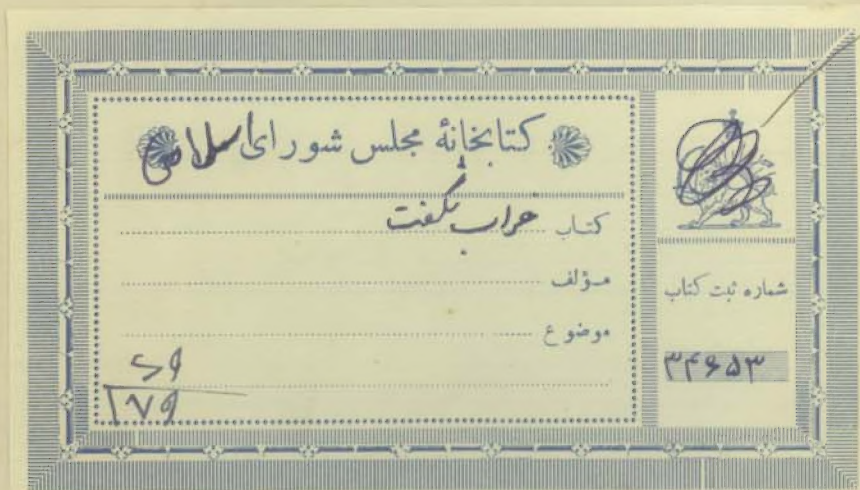 کتابخانهٔ مجلس شورای اسلامی
کتاب
مؤلف
موضوع
شماره ثبت کتاب
۳۴۶۵۳